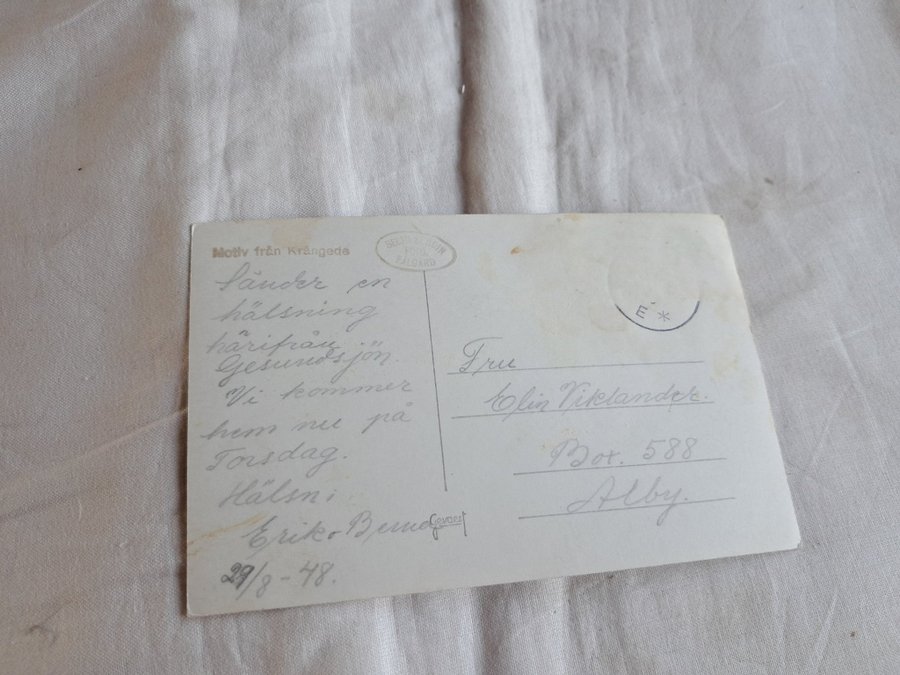 Motiv från Krångede
Sänder en
hälsning
härifrån
Gesundsjön.
Vi kommer
hem nu på
Torsdag.
Hälsn:
Erik o
29/8-48.
FOTO
E *
Fru
Elin Viklander.
Box. 588
Alby.
Gevaert